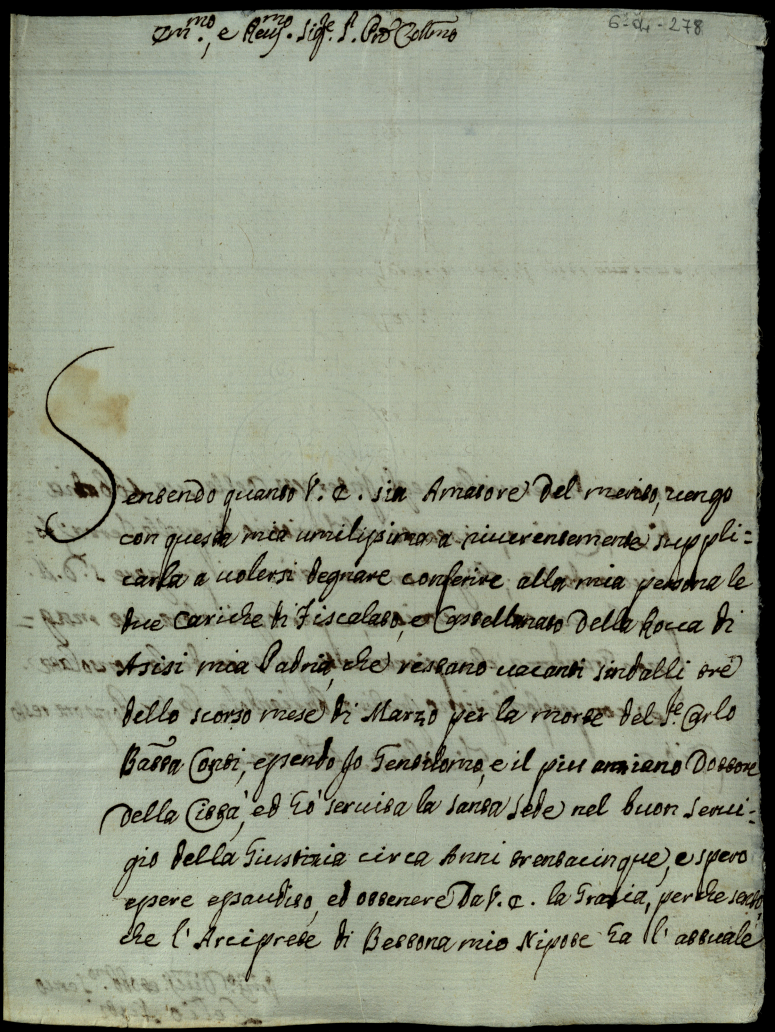 Em.mo, e Reu.mo Sig.re S. Prõ Collmo
6-d4-278
Sentendo quanto V. E. sia Amatore del merito, uengo
con questa mia umilissima a riuerentemente suppli=
carla a uolersi degnare conferire alla mia persona le
due Cariche di Fiscalato, e Castellanato della Rocca di
Asisi mia Padria, che restano uacanti sindalli tre
dello scorso mese di Marzo per la morte del S.re Carlo
Batta Conti, essendo Jo Gentilomo, e il piu anziano Dottore
della Città, ed hò seruita la santa sede nel buon serui=
gio della Giustizia circa Anni trentacinque, e spero
essere essaudito, ed ottenere da V. E. la Grazia, perche sento,
che l'Arciprete di Bettona mio Nipote ha l'attuale